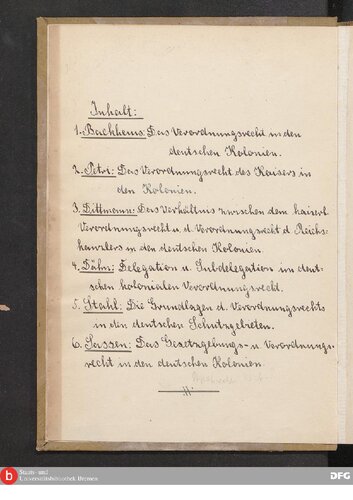 Inhalt:
1. Bachhems: Das Verordnungsrecht in den
deutschen Kolonien.
2. Petri: Das Verordnungsrecht des Kaisers in
den Kolonien.
3. Dittmann: Das Verhältnis zwischen dem kaiserl.
Verordnungsrecht u. d. Verordnungsrecht d. Reichs-
kanzlers in den deutschen Kolonien.
4. Dähn: Delegation u. Subdelegation im deut-
schen kolonialen Verordnungsrecht.
5. Stahl: Die Grundlagen d. Verordnungsrechts
in den deutschen Schutzgebieten.
6. Sassen: Das Gesetzgebungs- u. Verordnungs-
recht in den deutschen Kolonien.
Staats- und
Universitätsbibliothek Bremen
DFG